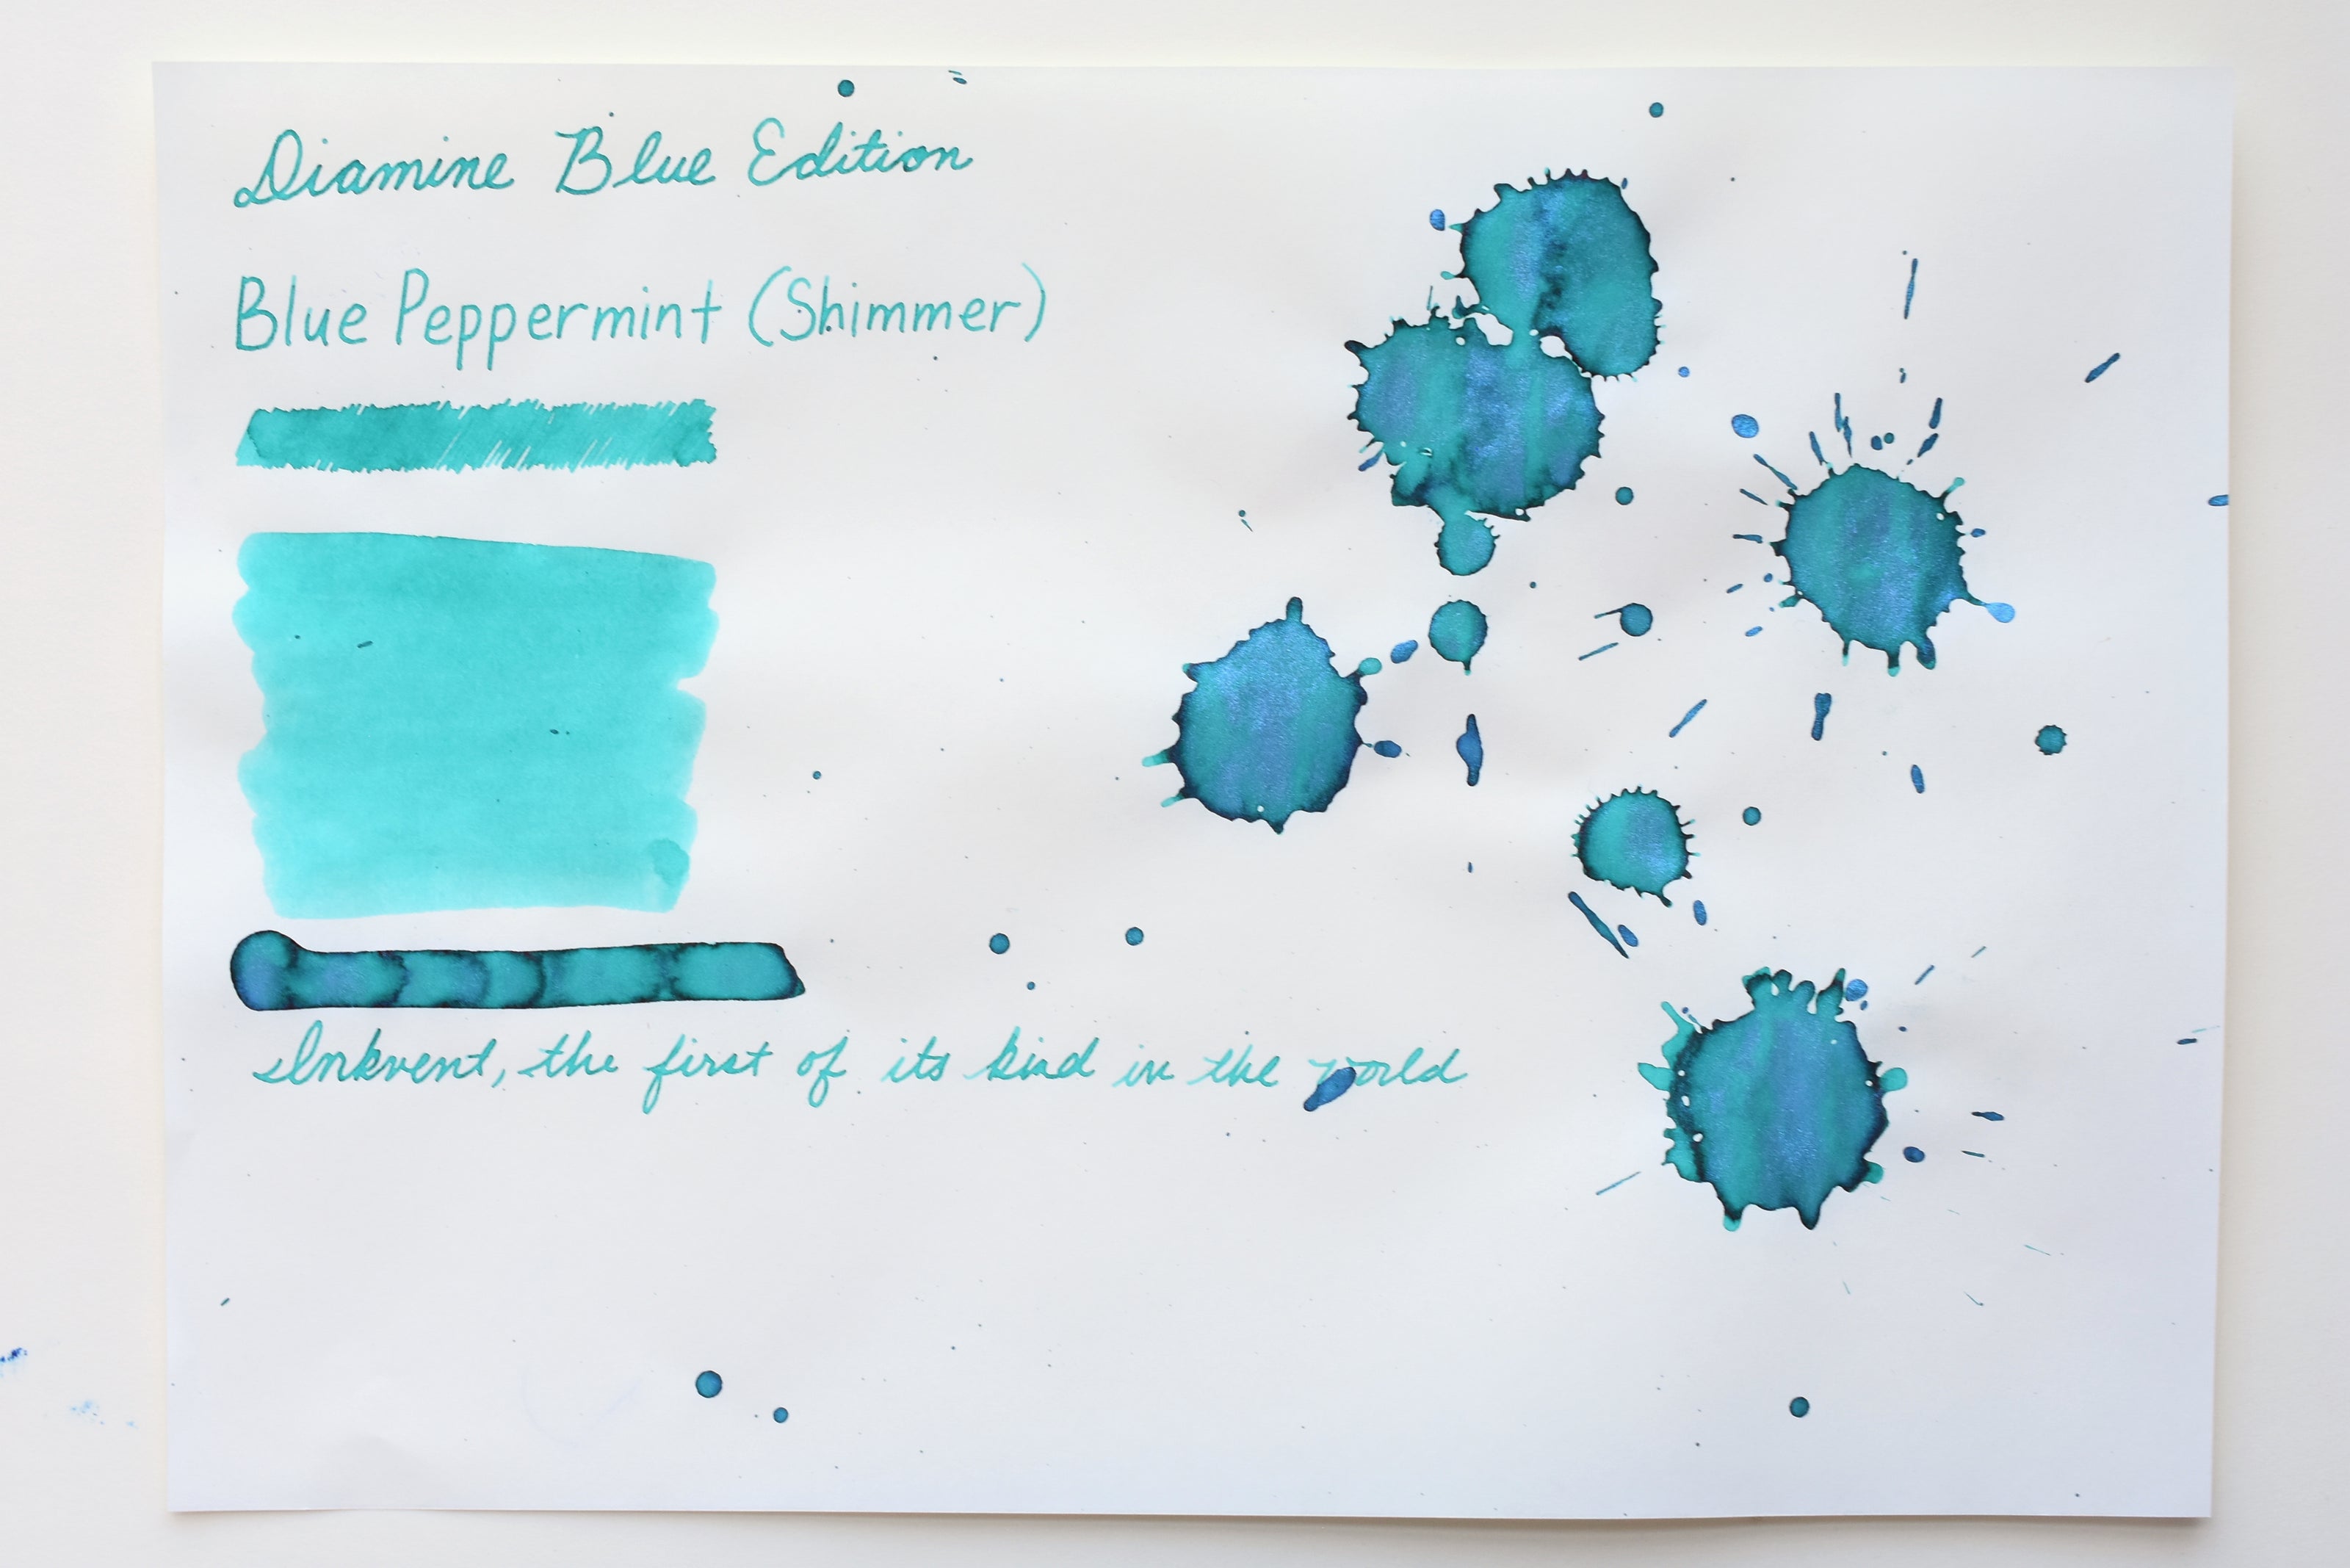 Diamine Blue Edition
Blue Peppermint (Shimmer)
Inkvent, the first of its kind in the world